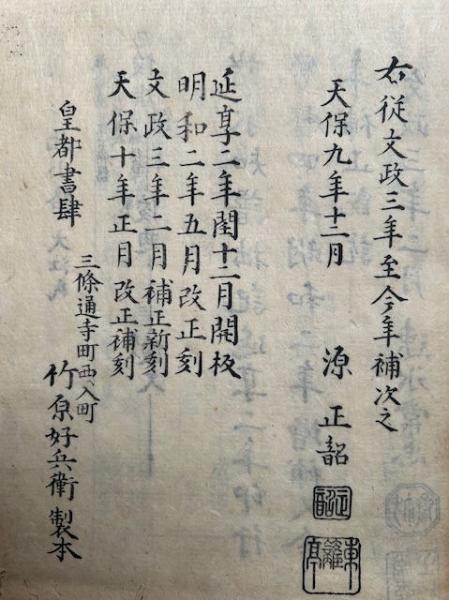 右従文政三年至今年補次之
天保九年十二月
源正韶
正韶
東籬亭
延享二年閏十二月開板
明和二年五月改正刻
文政三年二月補正新刻
天保十年正月改正補刻
皇都書肆
三條通寺町西入町
竹原好兵衛製本